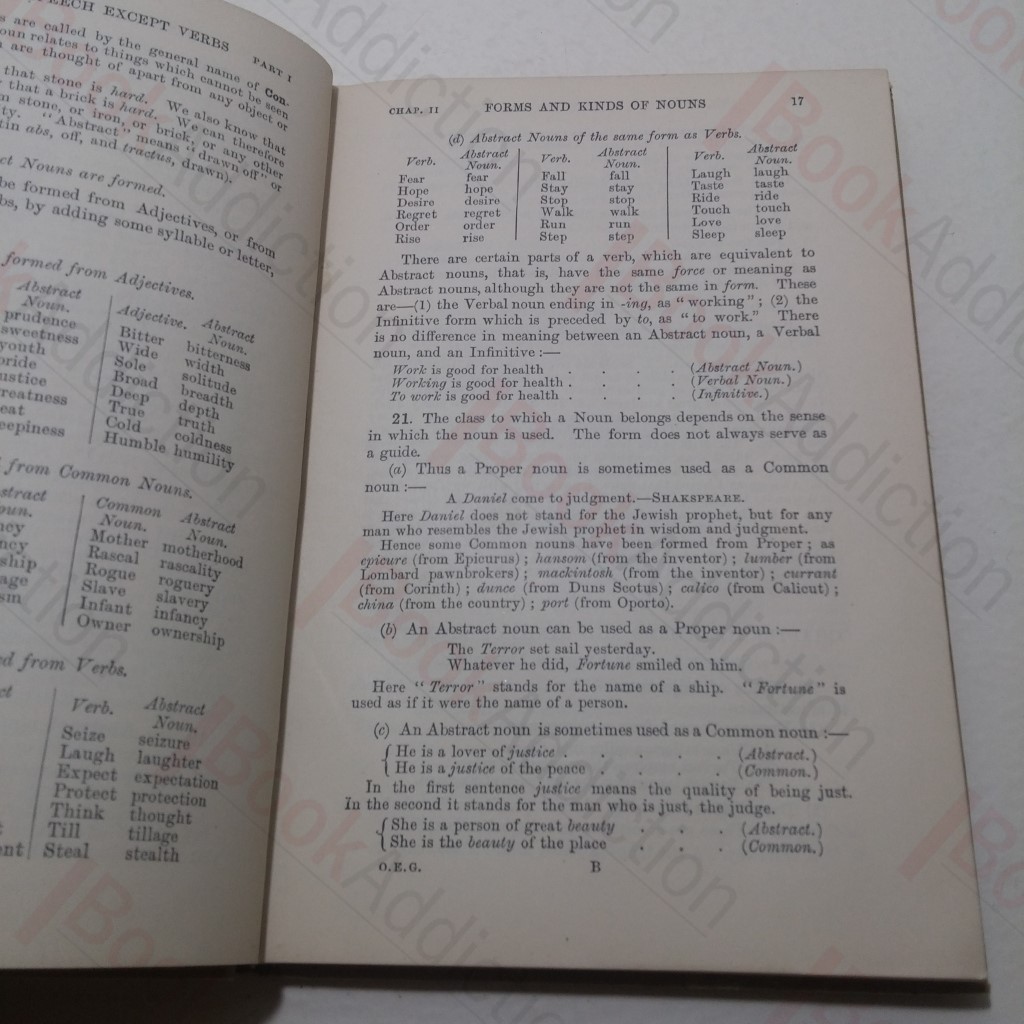 EECH EXCEPT VERBS PART I
s are called by the general name of Con-
oun relates to things which cannot be seen
are thought of apart from any object or
that stone is hard. We also know that
that a brick is hard. We can therefore
m stone, or iron, or brick, or any other
ty. "Abstract" means "drawn off" or
tin abs, off, and tractus, drawn).
ct Nouns are formed.
be formed from Adjectives, or from
bs, by adding some syllable or letter,
formed from Adjectives.
Abstract Noun. Adjective. Abstract Noun.
prudence Bitter bitterness
sweetness Wide width
youth Sole solitude
pride Broad breadth
ustice Deep depth
reatness True truth
eat Cold coldness
eepiness Humble humility
from Common Nouns.
stract oun. Common Noun. Abstract Noun.
ncy Mother motherhood
ncy Rascal rascality
ship Rogue roguery
age Slave slavery
sm Infant infancy
Owner ownership
d from Verbs.
ct Verb. Abstract Noun.
Seize seizure
Laugh laughter
Expect expectation
Protect protection
Think thought
t Till tillage
ent Steal stealth
CHAP. II FORMS AND KINDS OF NOUNS 17
(d) Abstract Nouns of the same form as Verbs.
Verb. Abstract Noun. Verb. Abstract Noun. Verb. Abstract Noun.
Fear fear Fall fall Laugh laugh
Hope hope Stay stay Taste taste
Desire desire Stop stop Ride ride
Regret regret Walk walk Touch touch
Order order Run run Love love
Rise rise Step step Sleep sleep
There are certain parts of a verb, which are equivalent to
Abstract nouns, that is, have the same force or meaning as
Abstract nouns, although they are not the same in form. These
are—(1) the Verbal noun ending in -ing, as "working"; (2) the
Infinitive form which is preceded by to, as "to work." There
is no difference in meaning between an Abstract noun, a Verbal
noun, and an Infinitive :—
Work is good for health . . . . (Abstract Noun.)
Working is good for health . . . . (Verbal Noun.)
To work is good for health . . . . (Infinitive.)
21. The class to which a Noun belongs depends on the sense
in which the noun is used. The form does not always serve as
a guide.
(a) Thus a Proper noun is sometimes used as a Common
noun :—
A Daniel come to judgment.—SHAKSPEARE.
Here Daniel does not stand for the Jewish prophet, but for any
man who resembles the Jewish prophet in wisdom and judgment.
Hence some Common nouns have been formed from Proper ; as
epicure (from Epicurus) ; hansom (from the inventor) ; lumber (from
Lombard pawnbrokers) ; mackintosh (from the inventor) ; currant
(from Corinth) ; dunce (from Duns Scotus) ; calico (from Calicut) ;
china (from the country) ; port (from Oporto).
(b) An Abstract noun can be used as a Proper noun :—
The Terror set sail yesterday.
Whatever he did, Fortune smiled on him.
Here "Terror" stands for the name of a ship. "Fortune" is
used as if it were the name of a person.
(c) An Abstract noun is sometimes used as a Common noun :—
He is a lover of justice . . . . . (Abstract.)
He is a justice of the peace . . . . (Common.)
In the first sentence justice means the quality of being just.
In the second it stands for the man who is just, the judge.
She is a person of great beauty . . . (Abstract.)
She is the beauty of the place . . . (Common.)
O.E.G. B
BookAddiction